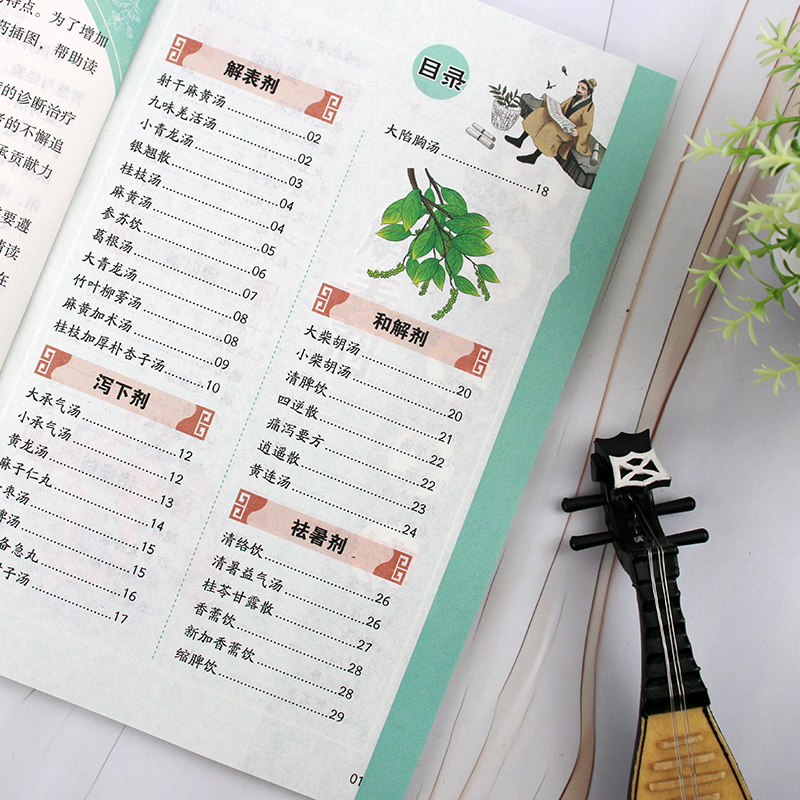 特点。为了增加
药插图，帮助读
的诊断治疗
者的不懈追
承贡献力
要遵
请读
在
目录
解表剂
射干麻黄汤……02
九味羌活汤……02
小青龙汤……03
银翘散……04
桂枝汤……04
麻黄汤……05
参苏饮……06
葛根汤……07
大青龙汤……08
竹叶柳蒡汤……08
麻黄加术汤……09
桂枝加厚朴杏子汤……10
泻下剂
大承气汤……12
小承气汤……12
黄龙汤……13
麻子仁丸……14
枣汤……15
脾汤……15
备急丸……16
子汤……17
大陷胸汤……18
和解剂
大柴胡汤……20
小柴胡汤……20
清脾饮……21
四逆散……22
痛泻要方……22
逍遥散……23
黄连汤……24
祛暑剂
清络饮……26
清暑益气汤……26
桂苓甘露散……27
香薷饮……28
新加香薷饮……28
缩脾饮……29
01